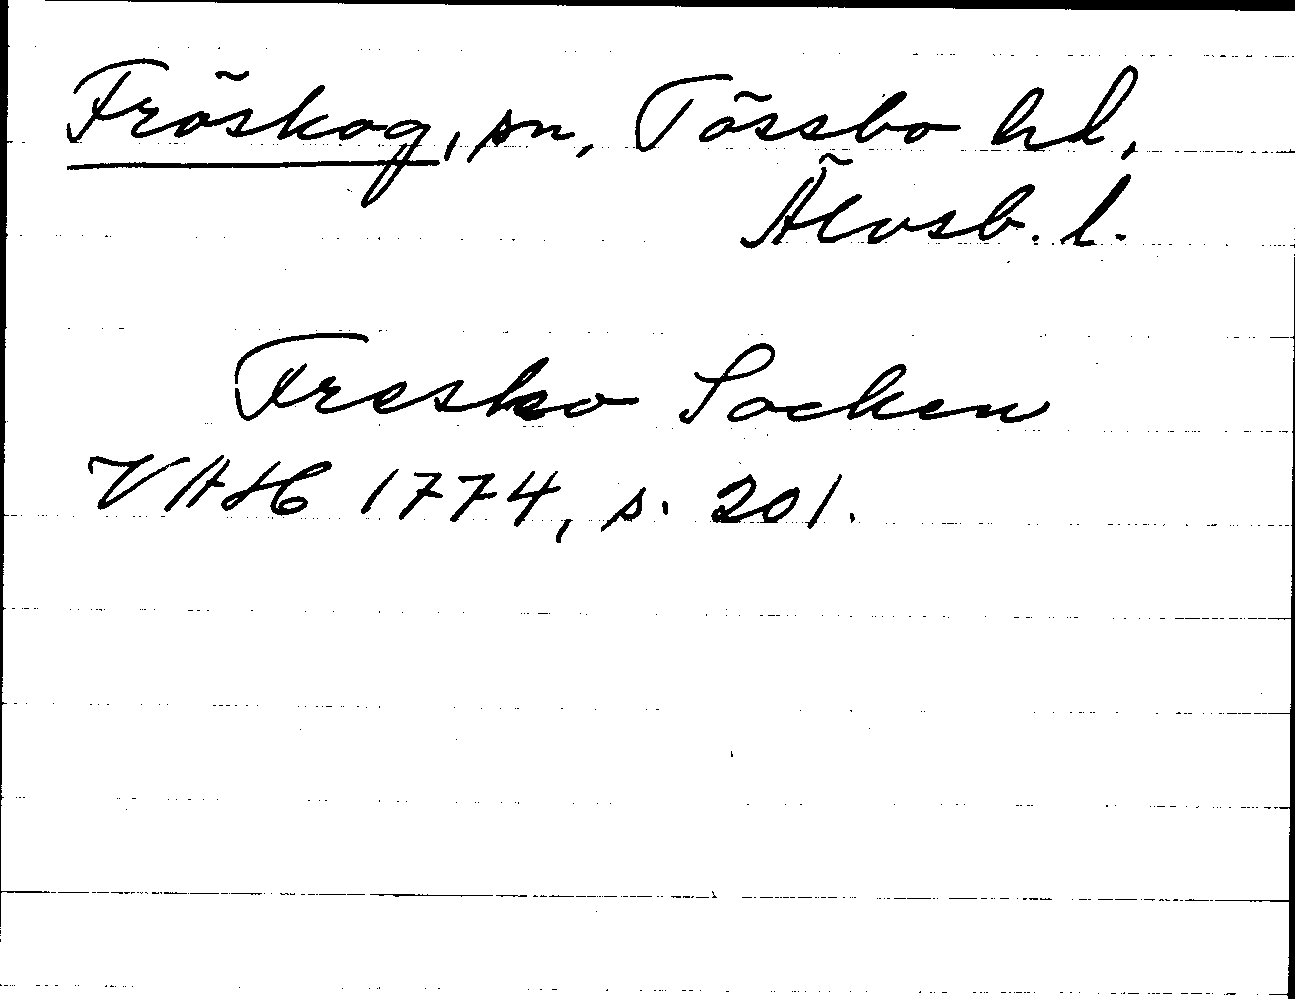 Fröskog, sn, Tössbo hd,
Älvsb. l.
Fresko Socken
VAH 1774, s. 201.